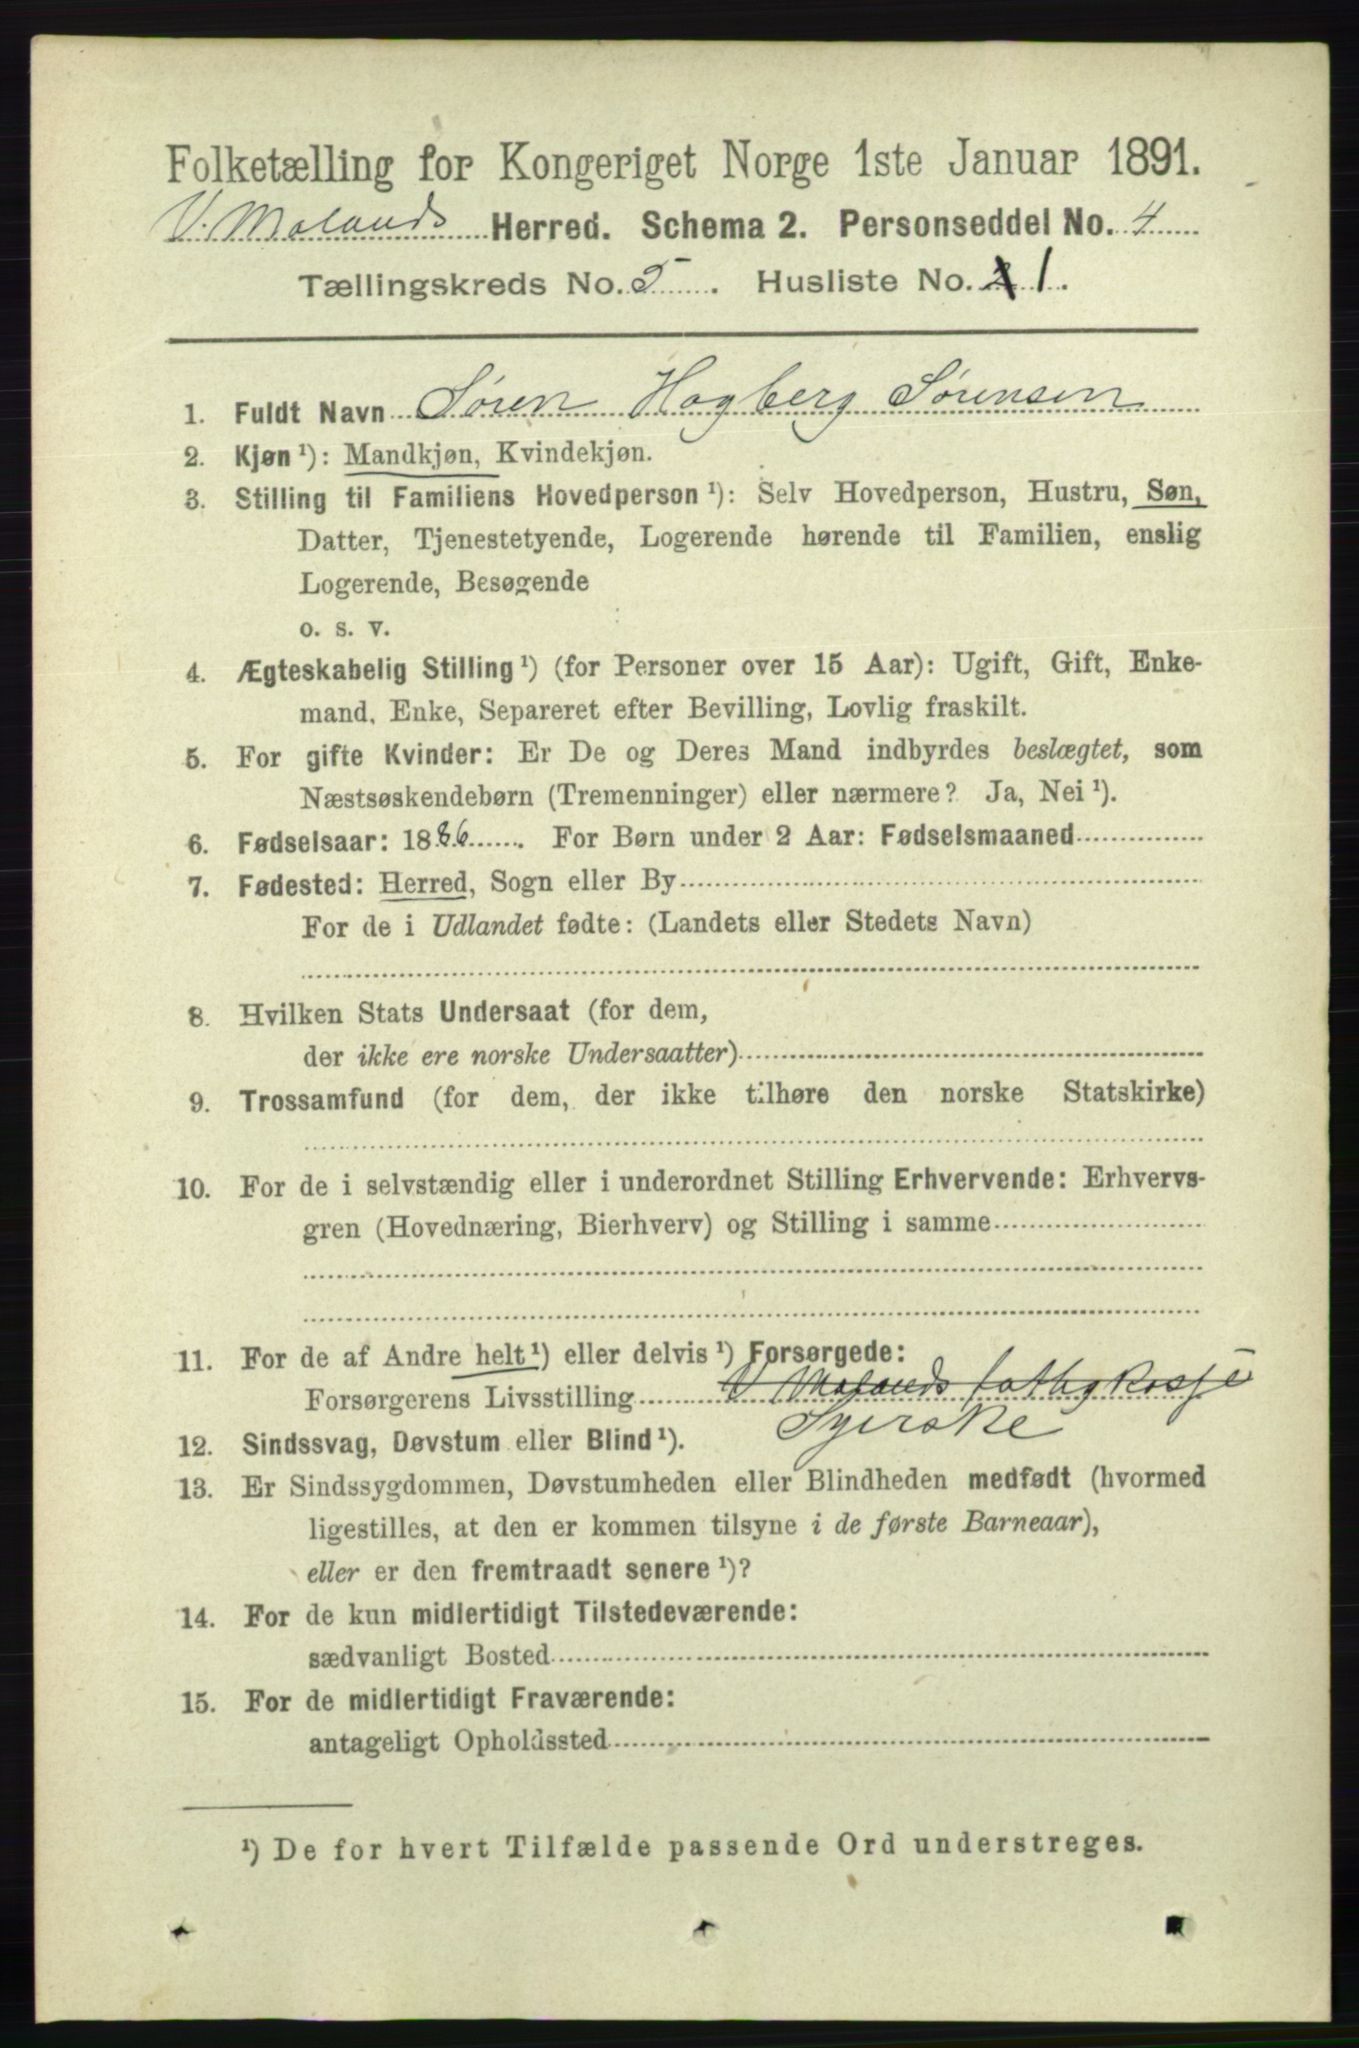 Folketælling for Kongeriget Norge 1ste Januar 1891.
V. Molands Herred. Schema 2. Personseddel No. 4
Tællingskreds No. 5. Husliste No. 2 1.
1. Fuldt Navn Søren Hogberg Sørensen
2. Kjøn ¹): Mandkjøn, Kvindekjøn.
3. Stilling til Familiens Hovedperson ¹): Selv Hovedperson, Hustru, Søn,
Datter, Tjenestetyende, Logerende hørende til Familien, enslig
Logerende, Besøgende
o. s. v.
4. Ægteskabelig Stilling ¹) (for Personer over 15 Aar): Ugift, Gift, Enke-
mand, Enke, Separeret efter Bevilling, Lovlig fraskilt.
5. For gifte Kvinder: Er De og Deres Mand indbyrdes beslægtet, som
Næstsøskendebørn (Tremenninger) eller nærmere? Ja, Nei ¹).
6. Fødselsaar: 1886. For Børn under 2 Aar: Fødselsmaaned
7. Fødested: Herred, Sogn eller By
For de i Udlandet fødte: (Landets eller Stedets Navn)
8. Hvilken Stats Undersaat (for dem,
der ikke ere norske Undersaatter)
9. Trossamfund (for dem, der ikke tilhøre den norske Statskirke)
10. For de i selvstændig eller i underordnet Stilling Erhvervende: Erhvervs-
gren (Hovednæring, Bierhverv) og Stilling i samme
11. For de af Andre helt ¹) eller delvis ¹) Forsørgede:
Forsørgerens Livsstilling V Molands fattigkasse
Syerske
12. Sindssvag, Døvstum eller Blind ¹).
13. Er Sindssygdommen, Døvstumheden eller Blindheden medfødt (hvormed
ligestilles, at den er kommen tilsyne i de første Barneaar),
eller er den fremtraadt senere ¹)?
14. For de kun midlertidigt Tilstedeværende:
sædvanligt Bosted
15. For de midlertidigt Fraværende:
antageligt Opholdssted
¹) De for hvert Tilfælde passende Ord understreges.